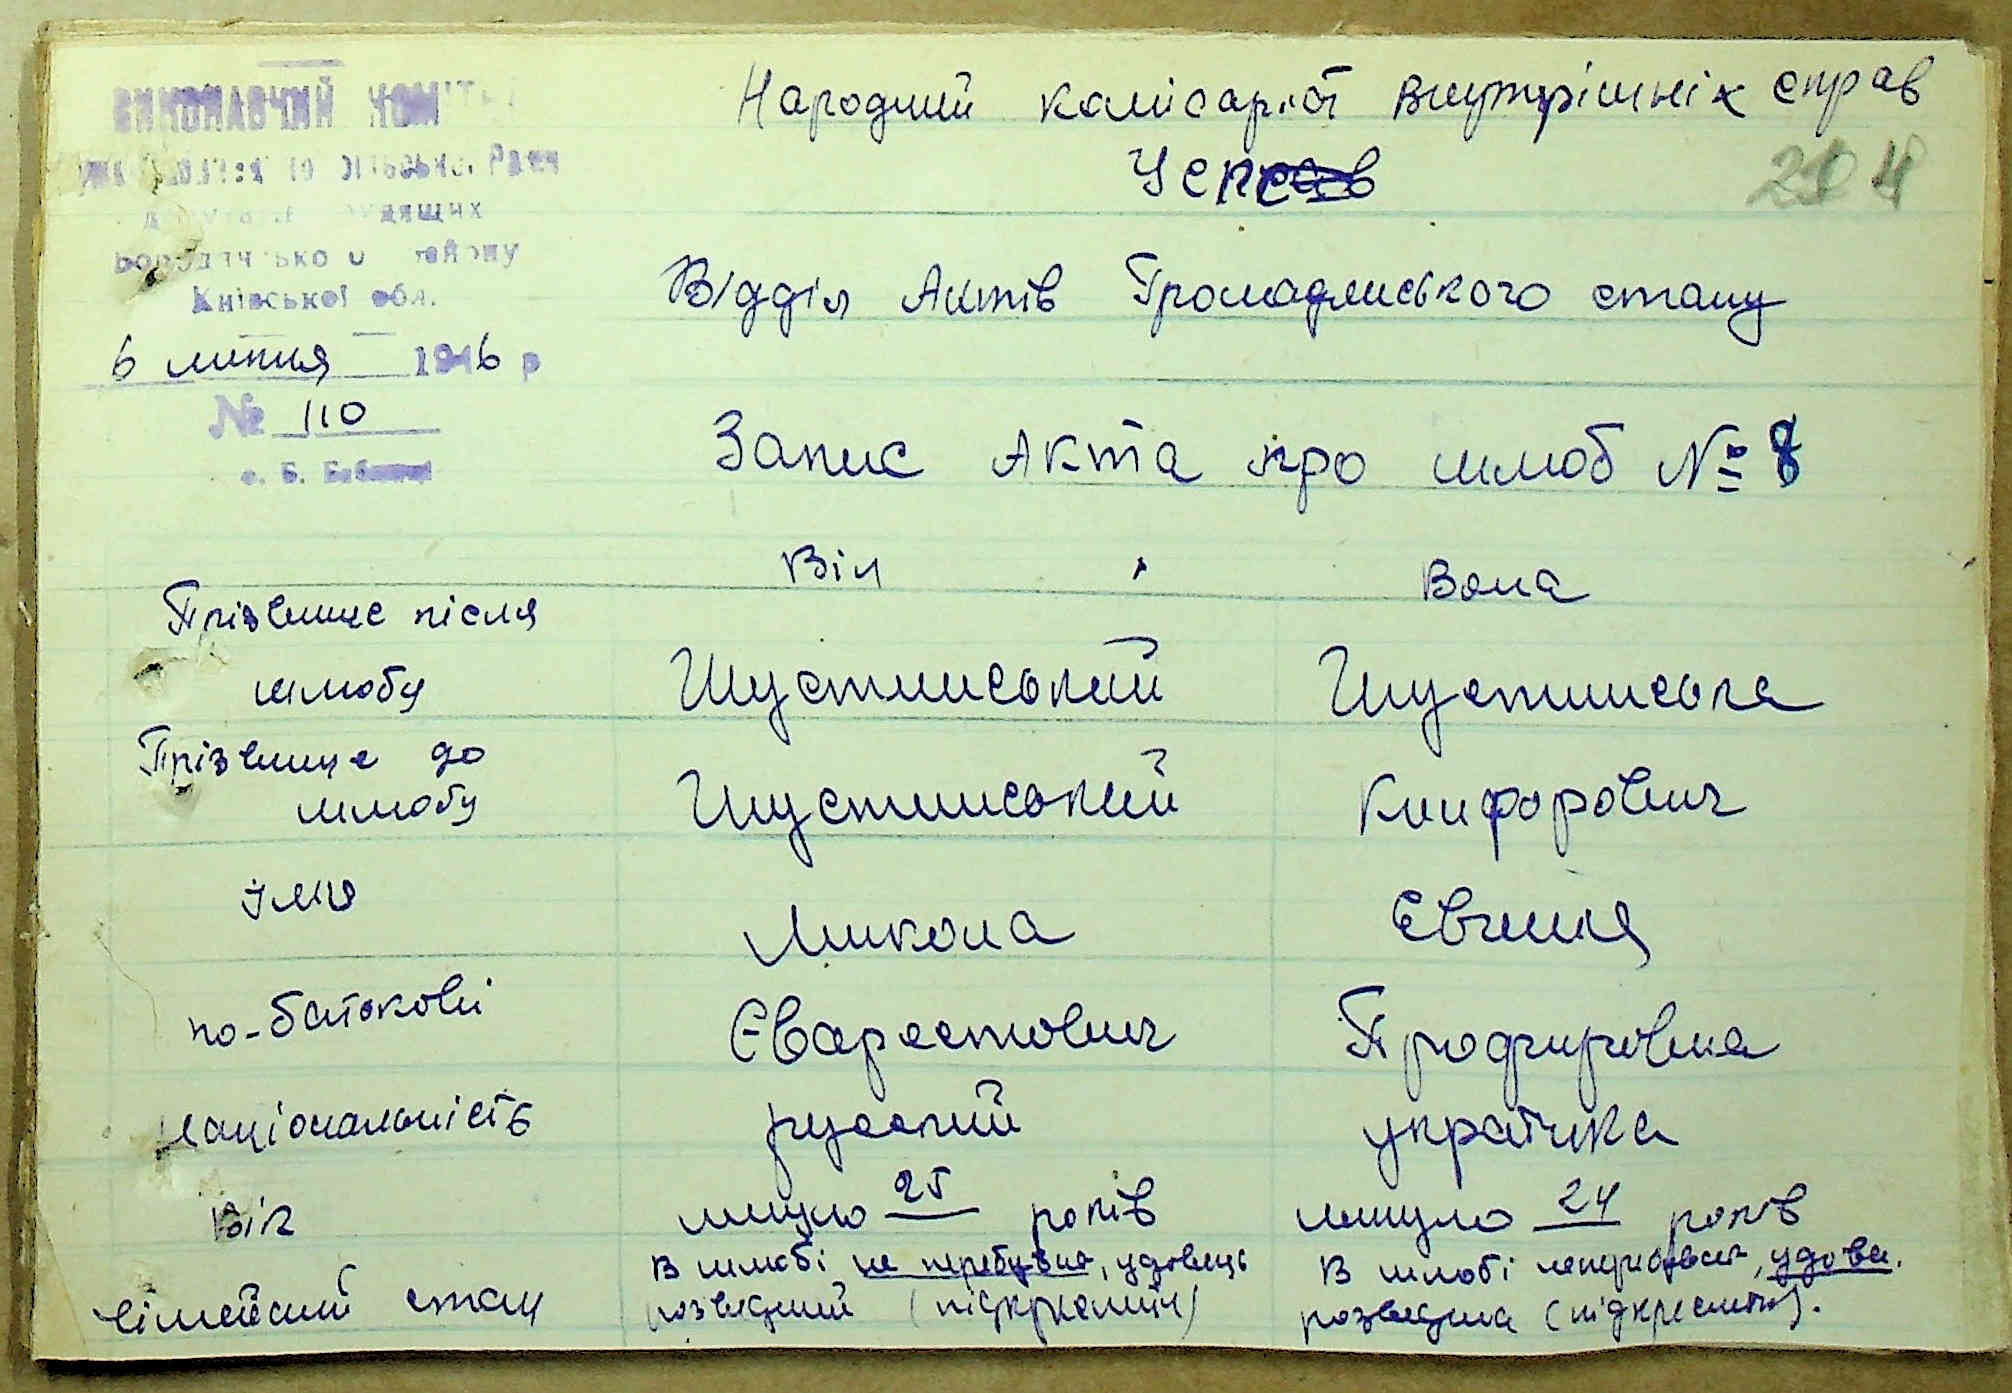 ВИКОНАВЧИЙ КОМІТ
Ради
дящих
району
Київської обл.
6 липня 1946 р
№ 110
с. Б.
Народний комісаріат внутрішніх справ
УСРР
204
Відділ Актів Громадянського стану
Запис Акта про шлюб № 8
Він Вона
Прізвище після
шлюбу Шустинський Шустинська
Прізвище до
шлюбу Шустинський Книфорович
імя Микола Євгенія
по-батькові Єварестович
національність руський українка
вік минуло 25 років минуло 24 років
сімейний стан В шлюбі не перебував, удовець В шлюбі удова.
розведений (підкреслити) розведена (підкреслити).